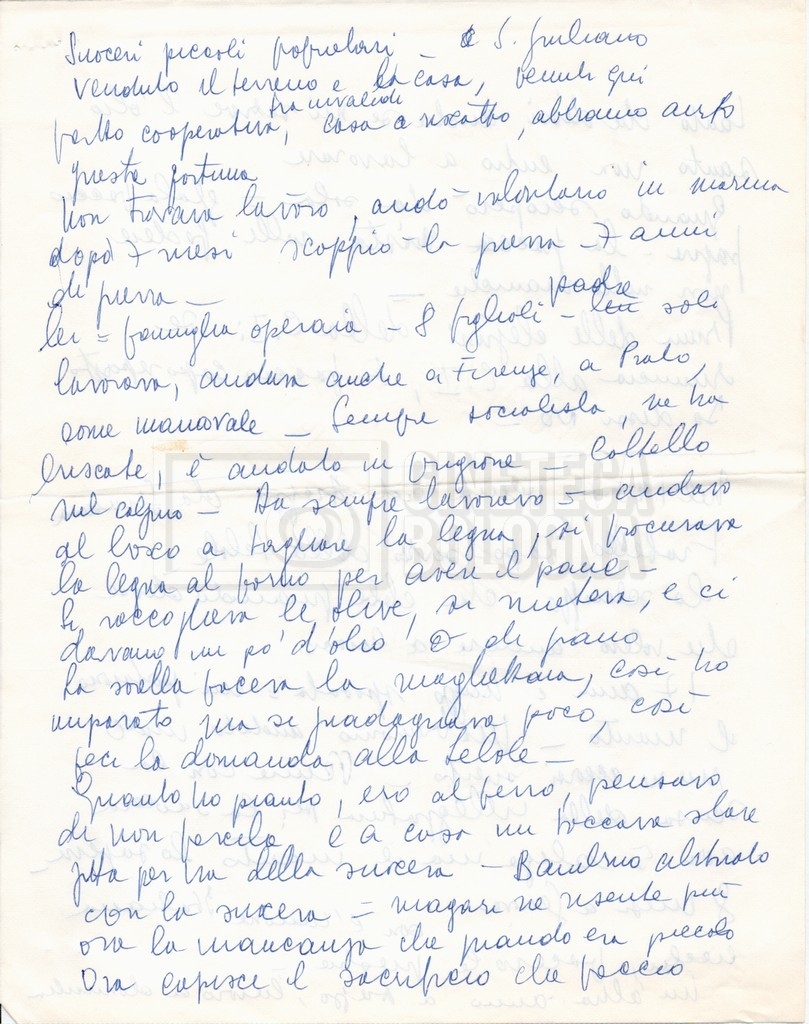 Suoceri piccoli proprietari - a S. Giuliano
venduto il terreno e la casa, venuti qui
fatto cooperativa, tra invalidi casa a riscatto, abbiamo avuto
questa fortuna
Non trovava lavoro, andò volontario in marina
dopo 7 mesi scoppiò la guerra - 7 anni
di guerra -
lei = famiglia operaia - 8 figlioli - padre solo
lavorava, andava anche a Firenze, a Prato,
come manovale - Sempre socialista, ne ha
buscate, è andato in prigione - Coltello
nel calcino - Ha sempre lavorato - andavo
al bosco a tagliare la legna, si procurava
la legna al forno per avere il pane -
Si raccoglieva le olive, si mieteva, e ci
davano un po' d'olio o di grano
La sorella faceva la magliettaia, così ho
imparato ma si guadagnava poco, così
feci la domanda alla Lebole -
Quanto ho pianto, ero al ferro, pensavo
di non farcela e a casa mi toccava stare
per via della suocera - Bambino abituato
con la suocera = magari ne risente più
ora la mancanza che quando era piccolo
Ora capisce il sacrificio che faccio
CINETECA
BOLOGNA